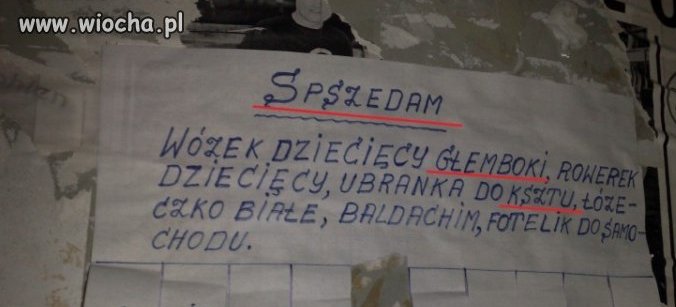 www.wiocha.pl
SPSZEDAM
WÓZEK DZIECIĘCY GŁEMBOKI, ROWEREK
DZIECIĘCY, UBRANKA DO KSZTU, ŁÓŻE-
CZKO BIAŁE, BALDACHIM, FOTELIK DO SAMO-
CHODU.